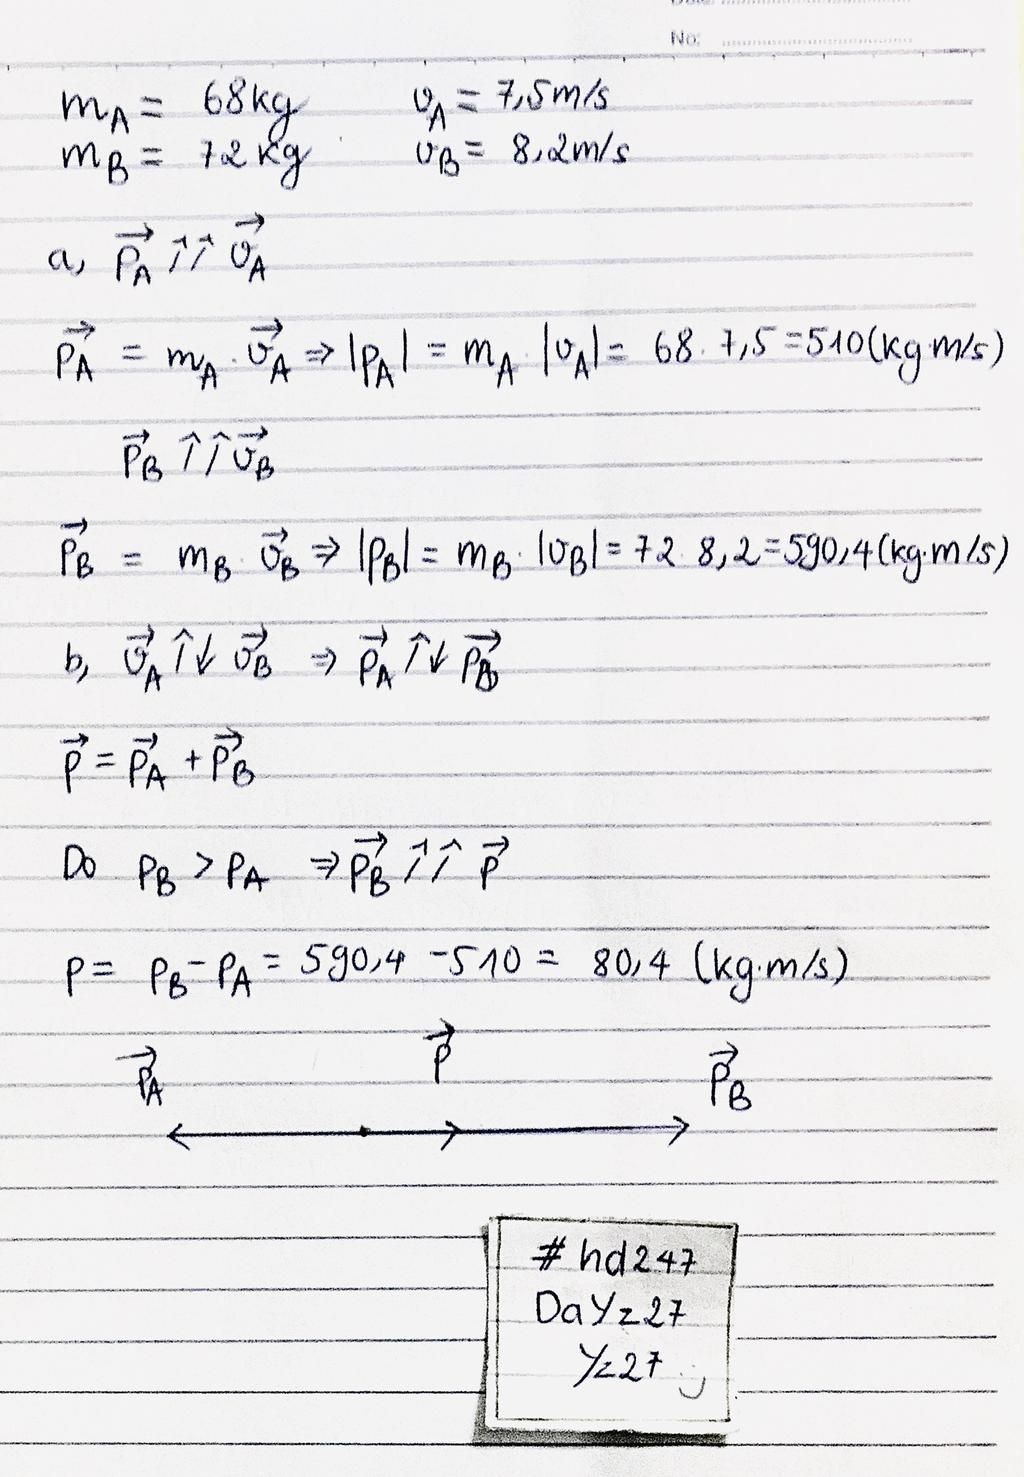 No:
m_A = 68kg v_A = 7,5m/s
m_B = 72kg v_B = 8,2m/s
a, \vec{p_A} ↑↑ \vec{v_A}
\vec{p_A} = m_A . \vec{v_A} ⇒ |p_A| = m_A . |v_A| = 68 . 7,5 = 510 (kg.m/s)
\vec{p_B} ↑↑ \vec{v_B}
\vec{p_B} = m_B . \vec{v_B} ⇒ |p_B| = m_B . |v_B| = 72 . 8,2 = 590,4 (kg.m/s)
b, \vec{v_A} ↑↓ \vec{v_B} ⇒ \vec{p_A} ↑↓ \vec{p_B}
\vec{p} = \vec{p_A} + \vec{p_B}
Do p_B > p_A ⇒ \vec{p_B} ↑↑ \vec{p}
p = p_B - p_A = 590,4 - 510 = 80,4 (kg.m/s)
\vec{p_A} \vec{p} \vec{p_B}
#hd247
DaYz27
Yz27